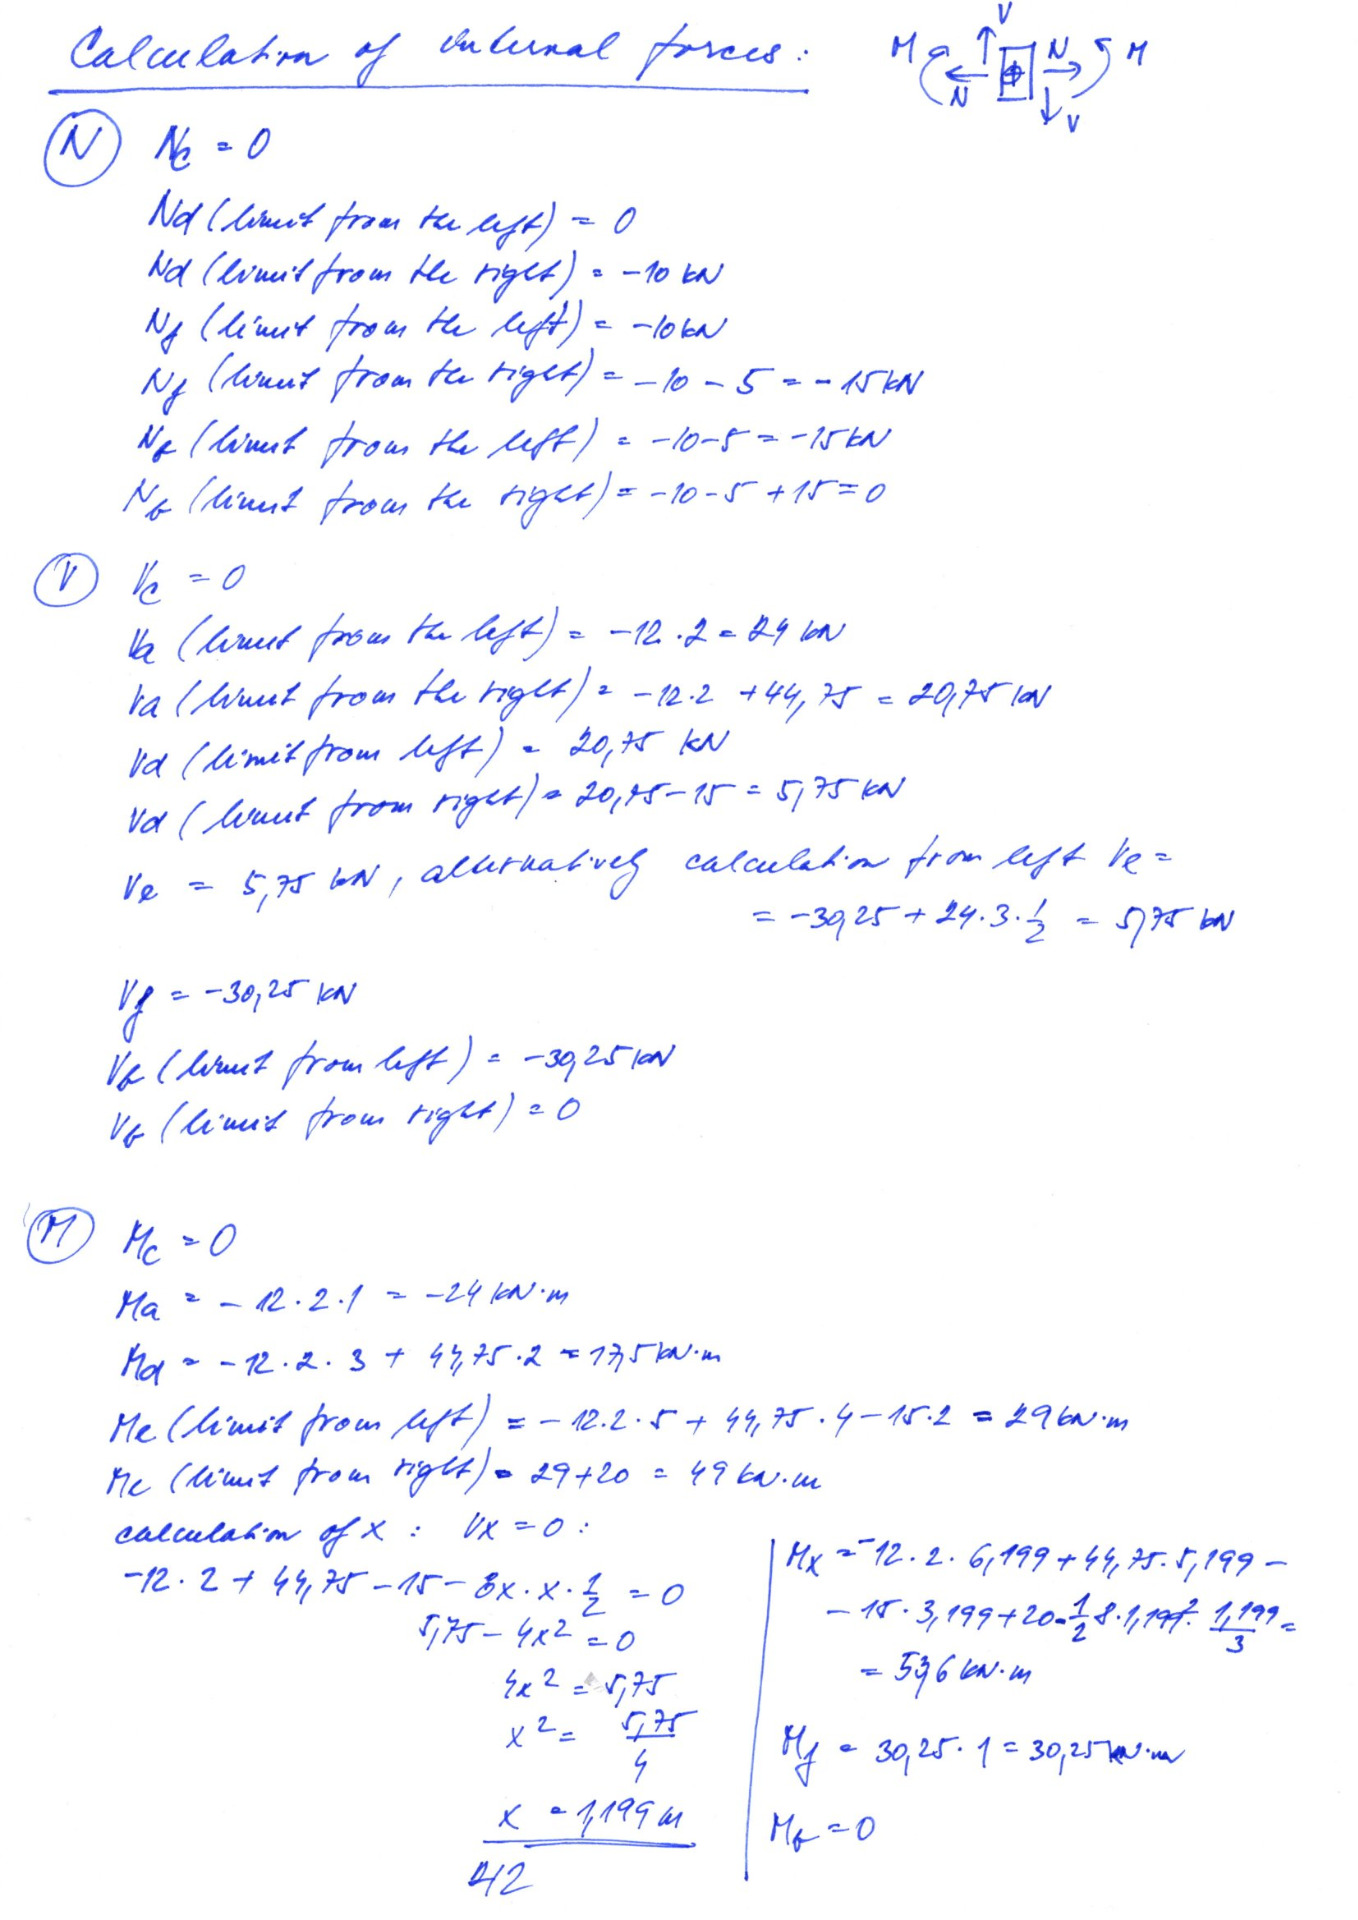 Calculation of internal forces:
M V N M
N V
N Nc = 0
Nd (limit from the left) = 0
Nd (limit from the right) = -10 kN
Nf (limit from the left) = -10 kN
Nf (limit from the right) = -10 - 5 = -15 kN
Nb (limit from the left) = -10-5 = -15 kN
Nb (limit from the right) = -10-5+15=0
V Vc = 0
Va (limit from the left) = -12.2 = 24 kN
Va (limit from the right) = -12.2 +44,75 = 20,75 kN
Vd (limit from left) = 20,75 kN
Vd (limit from right) = 20,75-15 = 5,75 kN
Ve = 5,75 kN, alternatively calculation from left Ve =
= -30,25 + 24.3.1/2 = 5,75 kN
Vf = -30,25 kN
Vb (limit from left) = -30,25 kN
Vb (limit from right) = 0
M Mc = 0
Ma = -12.2.1 = -24 kN.m
Md = -12.2.3 + 44,75.2 = 17,5 kN.m
Me (limit from left) = -12.2.5 + 44,75.4-15.2 = 29 kN.m
Me (limit from right) = 29+20 = 49 kN.m
calculation of x : Vx = 0:
-12.2 + 44,75 - 15 - 8x.x.1/2 = 0
5,75 - 4x² = 0
4x² = 5,75
x² = 5,75/4
x = 1,199 m
42
Mx = -12.2.6,199+44,75.5,199-
-15.3,199+20-1/2 8.1,199².1,199/3=
= 53,6 kN.m
Mf = 30,25.1 = 30,25 kN.m
Mb = 0